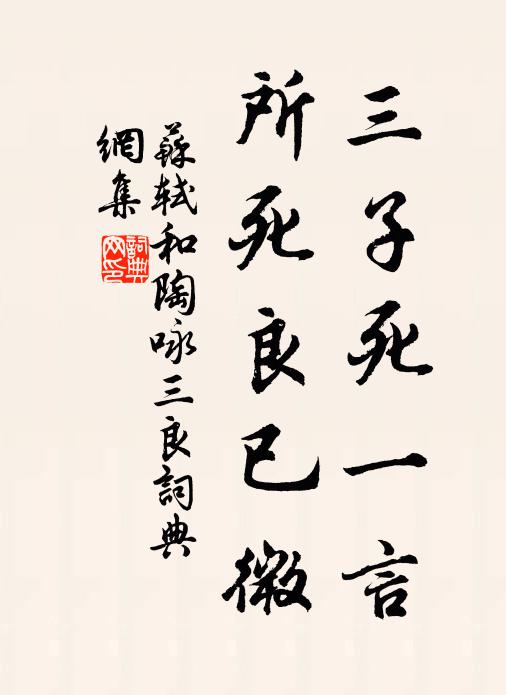 三子死一言
所死良已微
蘇軾和陶咏三良詞典
網集
詞典
网印